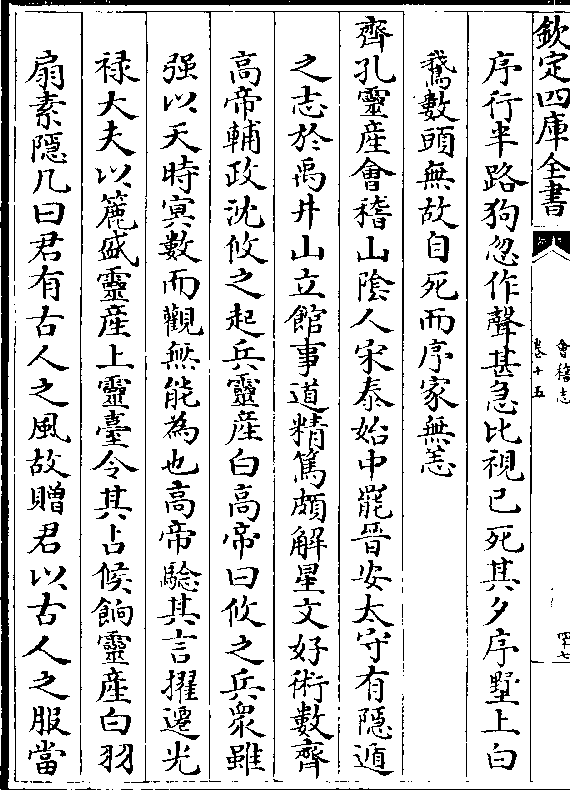 欽定四庫全書
會稽志
卷十五
四十七
序行半路狗忽作聲甚急比視已死其夕序墅上白
鵞數頭無故自死而序家無恙
齊孔靈産會稽山陰人宋泰始中罷晉安太守有隱遁
之志於禹井山立館事道精篤頗解星文好術數齊
高帝輔政沈攸之起兵靈産白高帝曰攸之兵衆雖
强以天時冥數而觀無能為也高帝驗其言擢遷光
禄大夫以簏盛靈産上靈臺令其占候餉靈産白羽
扇素隱几曰君有古人之風故贈君以古人之服當